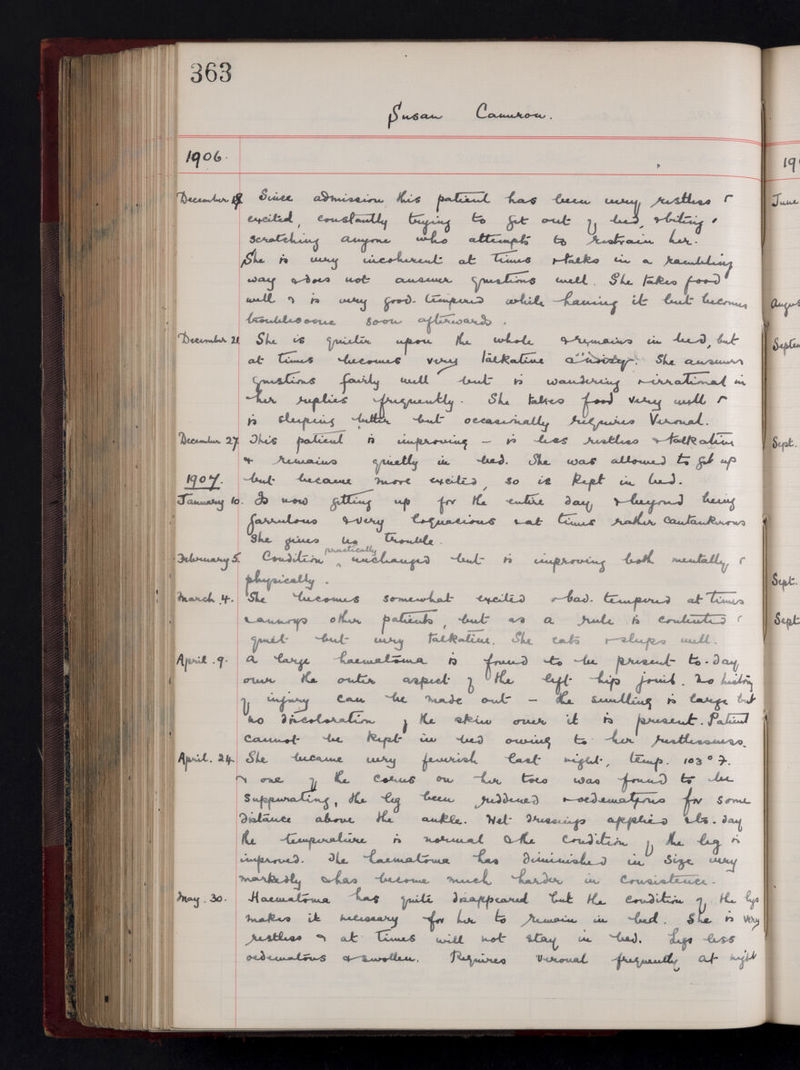 363
Susan Cameron.
1906.
December 18 Since admission this patient has been very restless &
excited, constantly trying to get out of bed, & biting &
scratching anyone who attempts to restrain her.
She is very incoherent at times & talks in a rambling
way & does not answer questions well. She takes food
well & is very good-tempered while having it but becomes
troublesome soon afterwards.
December 21 She is quieter upon the whole & remains in bed, but
at times becomes very talkative & noisy. She answers
questions fairly well but is wandering & irrational in
her replies frequently. She takes food very well &
is sleeping better but occasionally requires Veronal.
December 27 This patient is improving – is less restless & talkative
& remains quietly in bed. She was allowed to get up
1907. but became more excited, so is kept in bed.
January 10. Is now getting up for the entire day & beyond being
garrulous & very loquacious & at times rather cantankerous
She gives no trouble.
February 5. Condition practically unchanged but is improving both mentally &
physically.
March 4. She becomes somewhat excited & bad-tempered at times
& annoys other patients, but as a rule is contented &
quiet but very talkative. She eats & sleeps well.
April 9. A large haematoma is found to be present to-day
over the outer aspect of the left hip joint. No history
of injury can be made out – the swelling is large but
no discoloration of the skin over it is present. Patient
cannot be kept in bed owing to her restlessness.
April. 24. She became very feverish last night, temp. 103° F.
& one of the corns on her toes was found to be
suppurating, the leg been reddened & oedematous for some
distance above the ankle. Wet dressings applied & to-day
the temperature is normal & the condition of the leg is
improved. The haematoma has diminished in size very
markedly & has become much harder in consistence.
May. 30. Haematoma has quite disappeared but the condition of the legs
makes it necessary for her to remain in bed. She is very
restless & at times will not stay in bed. Legs less
oedematous & swollen. Requires veronal frequently at night
19
June
Augus
Septem
Sept.
Sept.
Sept